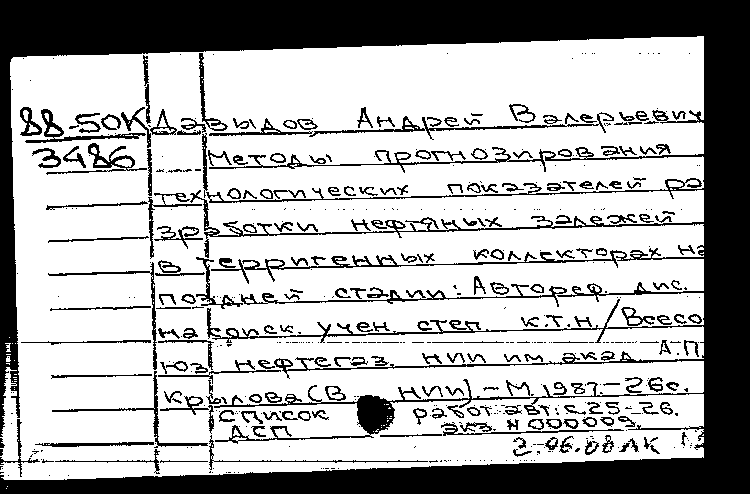 88-50К Давыдов, Андрей Валерьевич
3486 Методы прогнозирования
технологических показателей ра
зработки нефтяных залежей
в терригенных коллекторах на
поздней стадии: Автореф. дис.
на соиск. учен. степ. к.т.н./Всесо
юз. нефтегаз. НИИ им. акад. А.П.
Крылова (В НИИ).-М, 1987.-26с.
Список работ авт.: с.25-26.
ДСП экз. N 000009.
2.06.88 ЛК